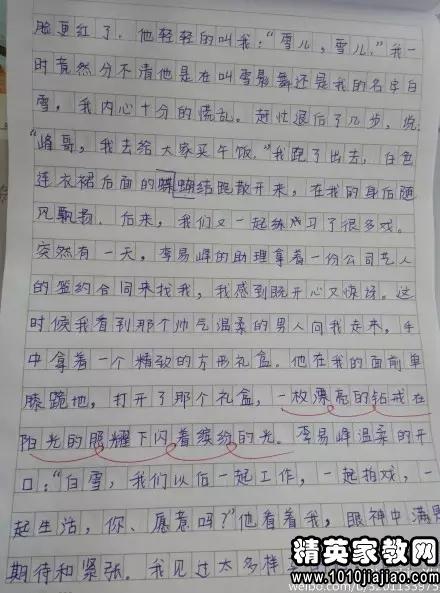 脸更红了。他轻轻的叫我："雪儿，雪儿。"我一
时竟然分不清他是在叫雪影舞还是我的名字白
雪。我内心十分的慌乱。赶忙退后了几步，说：
"峰哥，我去给大家买午饭。"我跑了出去，白色
连衣裙后面的蝴蝶结跑散开来，在我的身后随
风飘扬。后来，我们又一起练习了很多戏。
突然有一天，李易峰的助理拿着一份公司艺人
的签约合同来找我，我感到既开心又惊讶。这
时候我看到那个帅气温柔的男人向我走来，手
中拿着一个精致的方形礼盒。他在我的面前单
膝跪地，打开了那个礼盒，一枚漂亮的钻戒在
阳光的照耀下闪着缤纷的光。李易峰温柔的开
口："白雪，我们以后一起工作，一起拍戏，一
起生活，你、愿意吗？"他看着我，眼神中满是
期待和紧张。我见过太多样
精英家教网
www.1010jiajiao.com